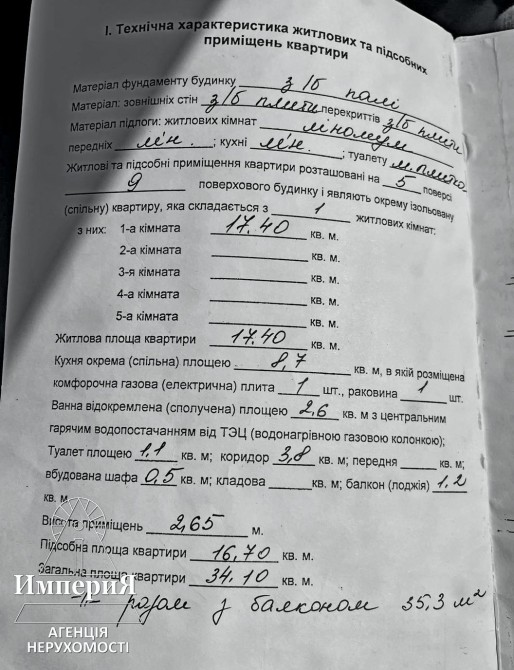 І. Технічна характеристика житлових та підсобних
приміщень квартири
Матеріал фундаменту будинку з/б палі
Матеріал: зовнішніх стін з/б плити перекриттів з/б плити
Матеріал підлоги: житлових кімнат лінолеум
передніх лін. ; кухні лін. ; туалету м.плитка
Житлові та підсобні приміщення квартири розташовані на 5 поверсі
9 поверхового будинку і являють окрему ізольовану
(спільну) квартиру, яка складається з 1 житлових кімнат:
з них: 1-а кімната 17.40 кв. м.
2-а кімната кв. м.
3-я кімната кв. м.
4-а кімната кв. м.
5-а кімната кв. м.
Житлова площа квартири 17.40 кв. м.
Кухня окрема (спільна) площею 8,7 кв. м, в якій розміщена
комфорочна газова (електрична) плита 1 шт., раковина 1 шт.
Ванна відокремлена (сполучена) площею 2,6 кв. м з центральним
гарячим водопостачанням від ТЭЦ (водонагрівною газовою колонкою);
Туалет площею 1,1 кв. м; коридор 3,8 кв. м; передня кв. м;
вбудована шафа 0,5 кв. м; кладова кв. м; балкон (лоджія) 1,2
кв. м
Висота приміщень 2,65 м.
Підсобна площа квартири 16,70 кв. м.
Загальна площа квартири 34.10 кв. м.
-"- разом з балконом 35,3 м²
ИмпериЯ
АГЕНЦІЯ
НЕРУХОМОСТІ